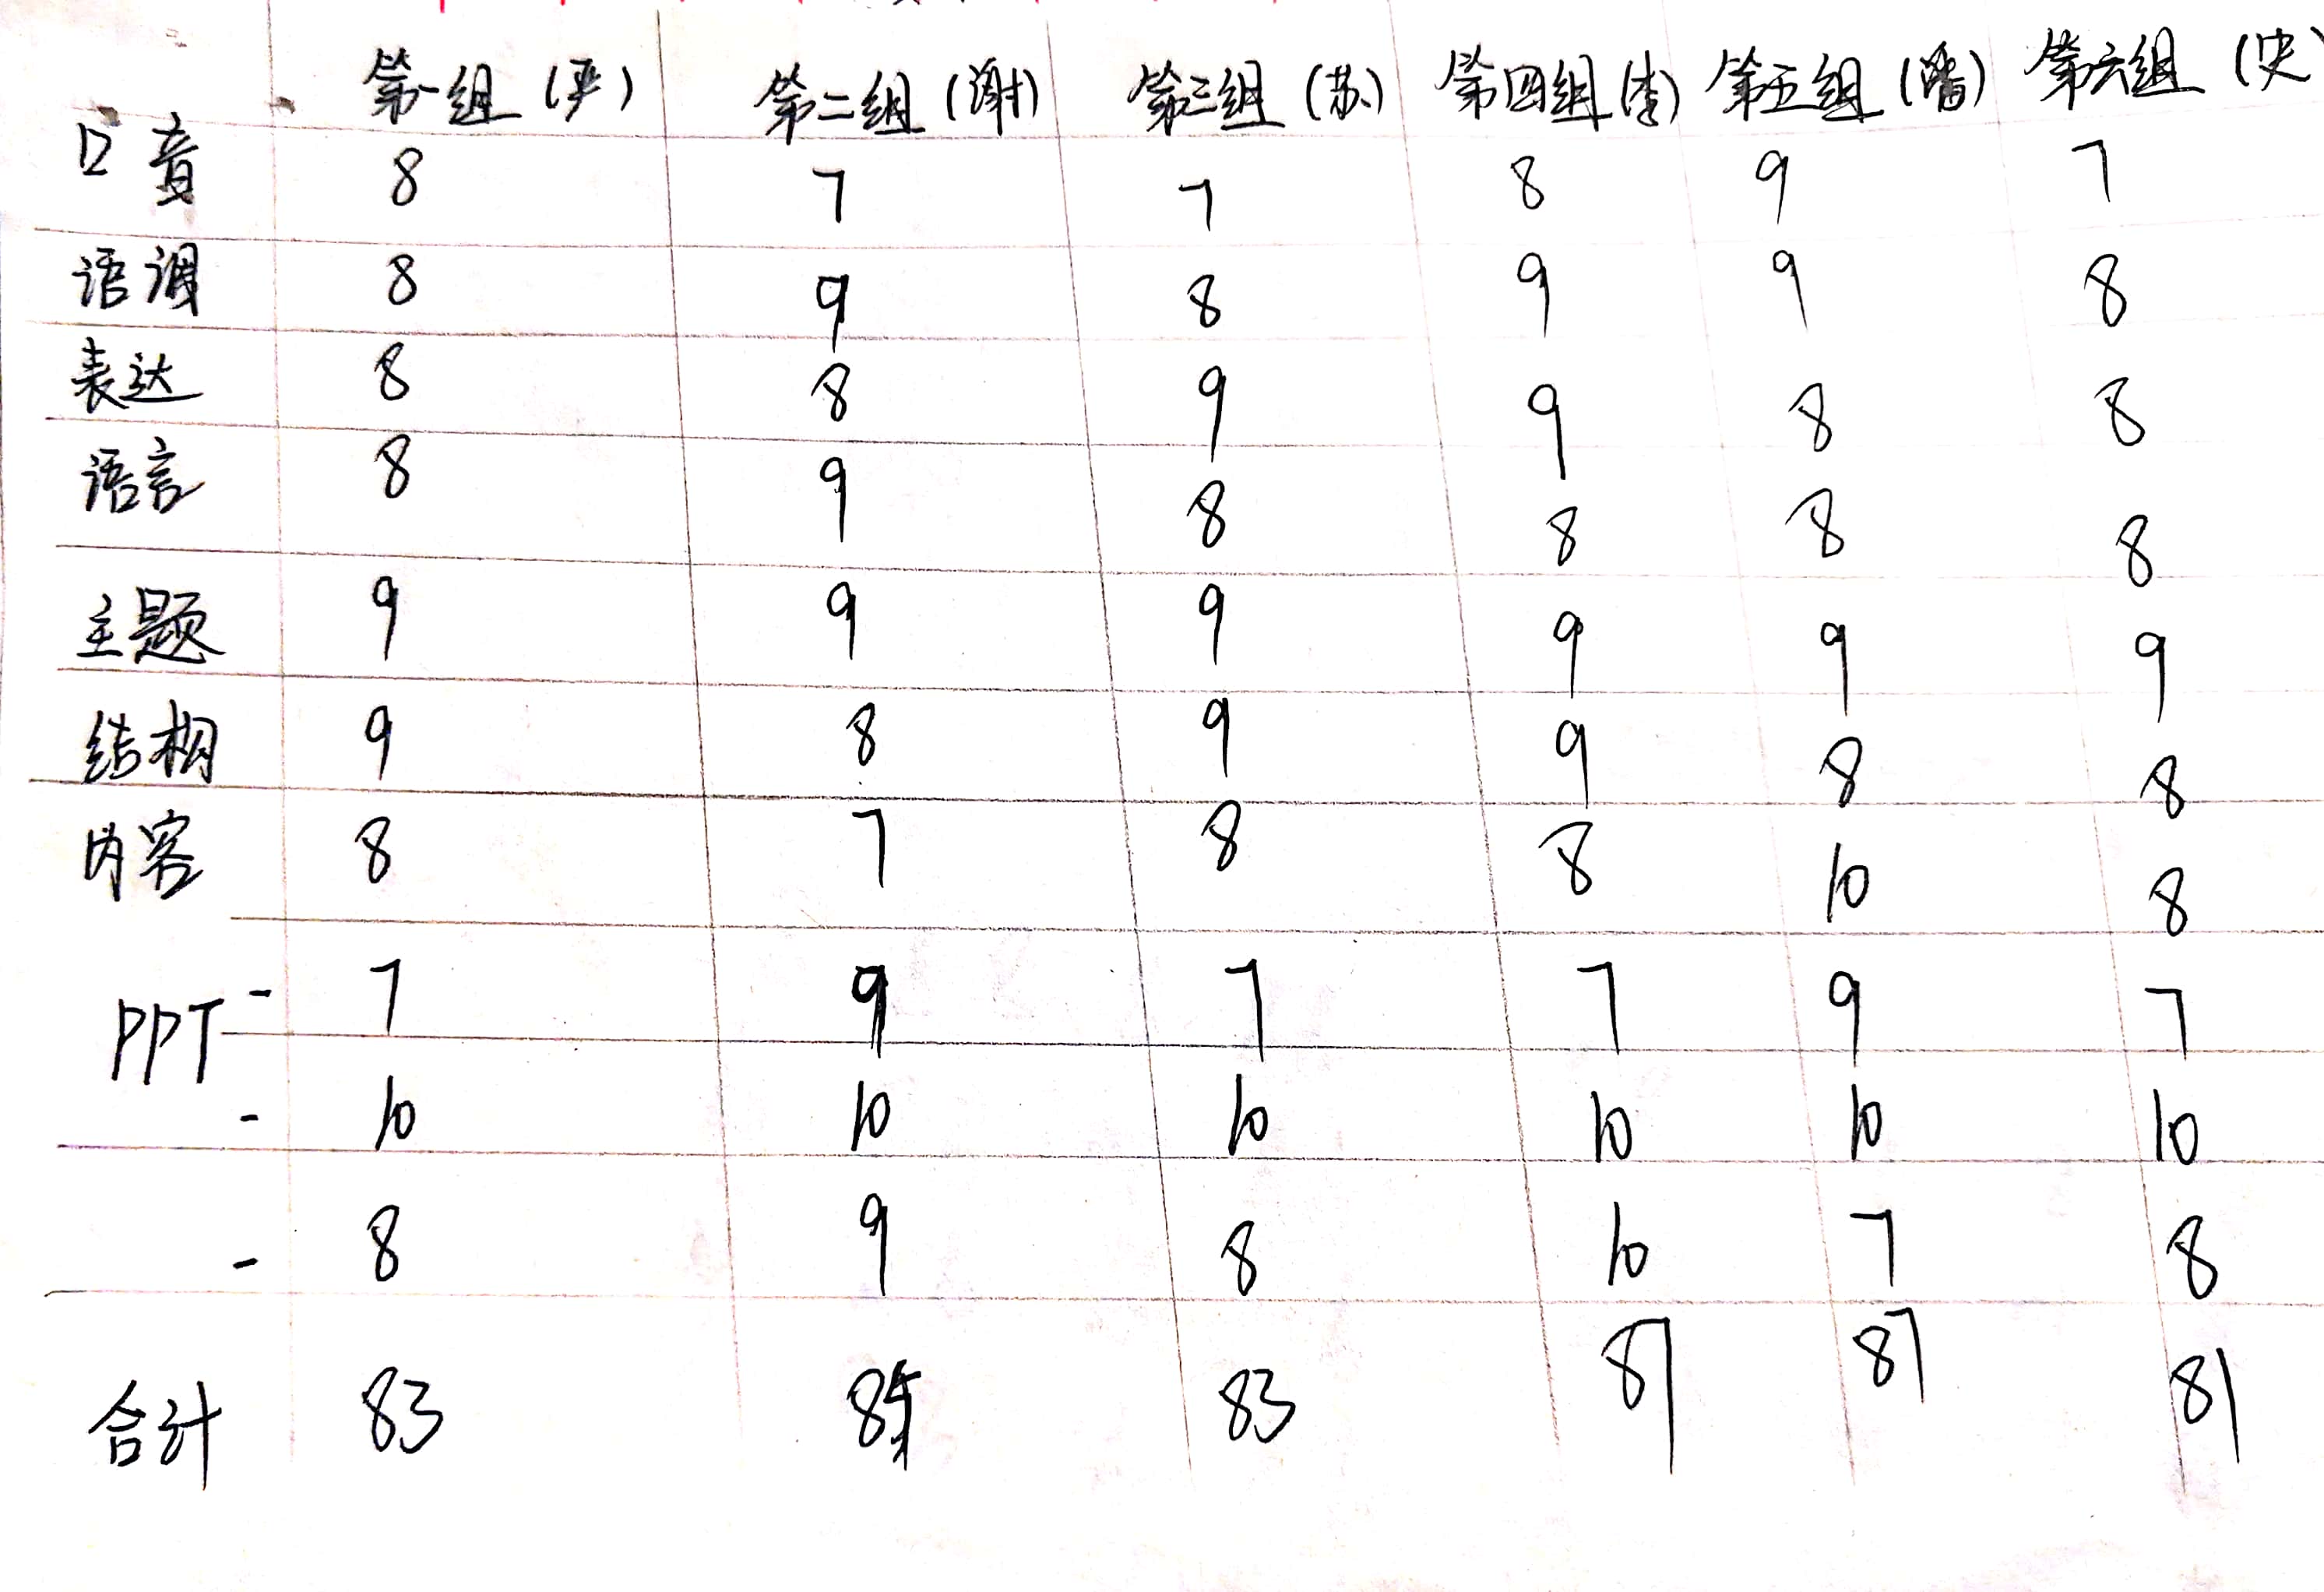 第一组 (严) 第二组 (谢) 第三组 (苏) 第四组 (李) 第五组 (潘) 第六组 (史)
口音 8 7 7 8 9 7
语调 8 9 8 9 9 8
表达 8 8 9 9 8 8
语言 8 9 8 8 8 8
主题 9 9 9 9 9 9
结构 9 8 9 9 8 8
内容 8 7 8 8 10 8
PPT - 7 9 7 7 9 7
- 10 10 10 10 10 10
- 8 9 8 10 7 8
合计 83 83 87 87 81